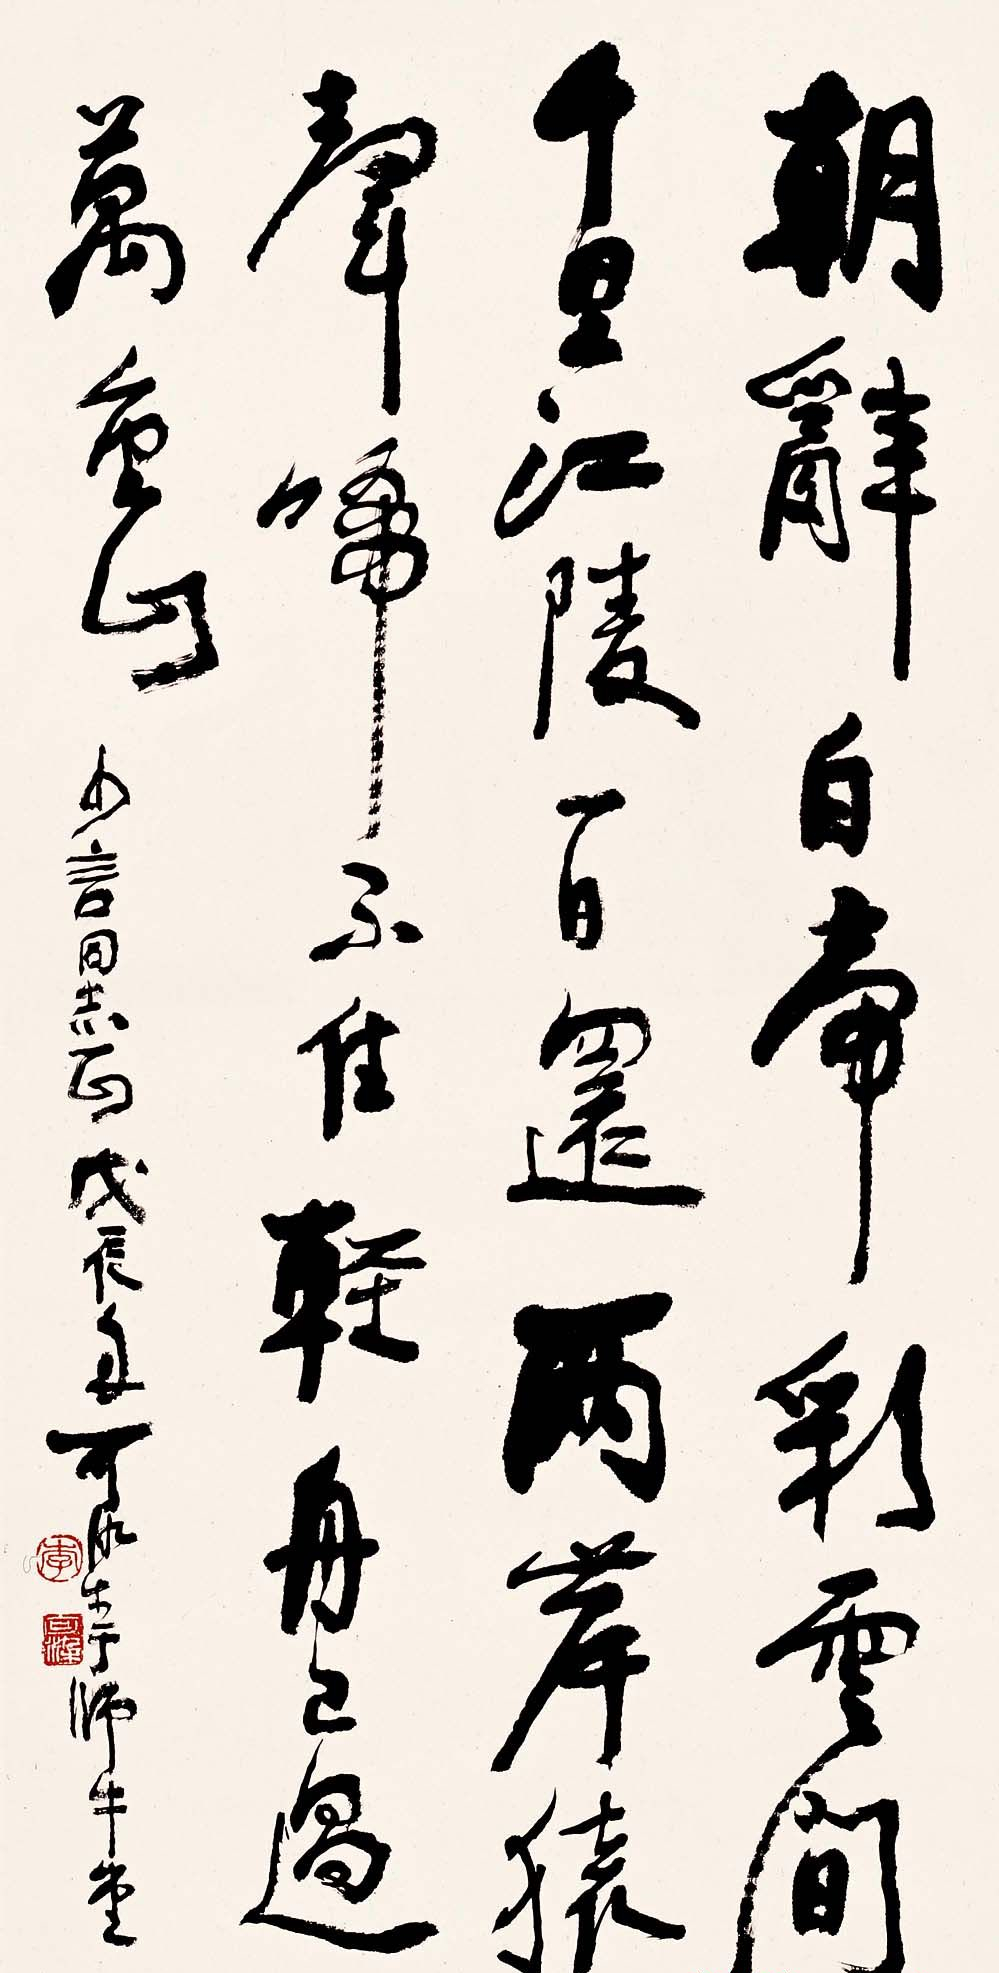 朝辭白帝彩雲間
千里江陵一日還兩岸猿
聲啼不住輕舟已過
萬重山 少言同志正 戊辰年 可染于師牛堂
李
可染